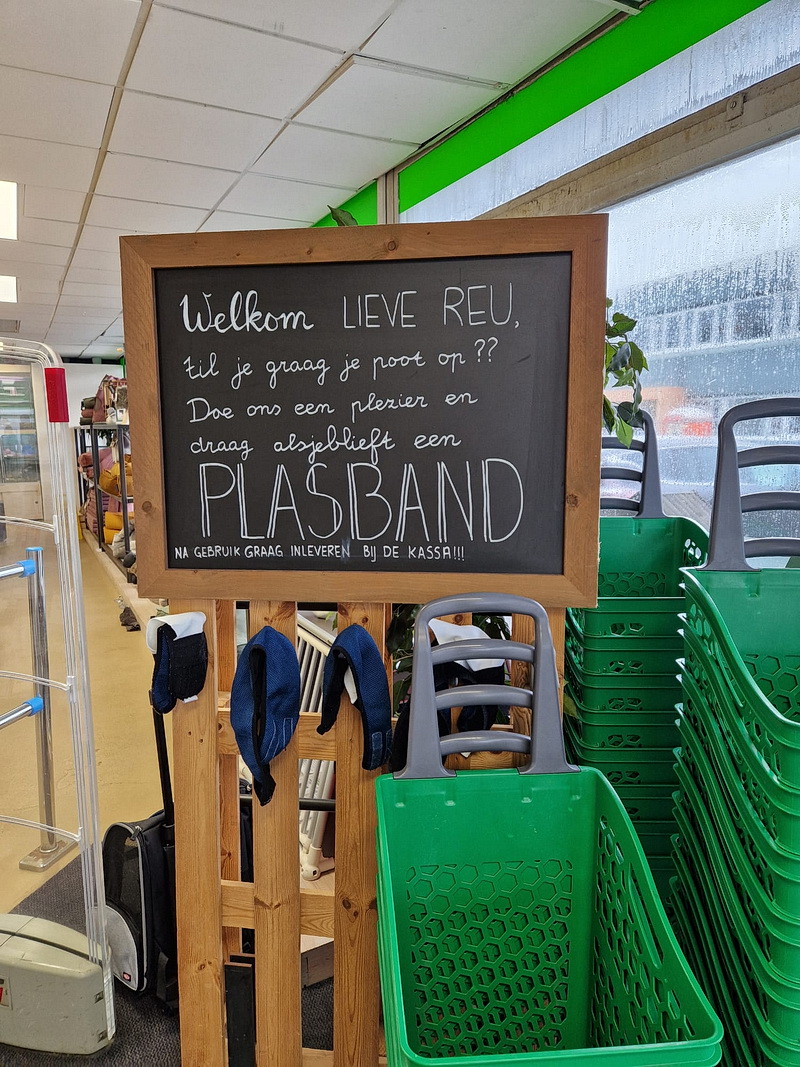 Welkom LIEVE REU,
til je graag je poot op ??
Doe ons een plezier en
draag alsjeblieft een
PLASBAND
NA GEBRUIK GRAAG INLEVEREN BIJ DE KASSA!!!